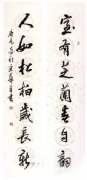 室有芝蘭春自韻
人如松柏歲長新